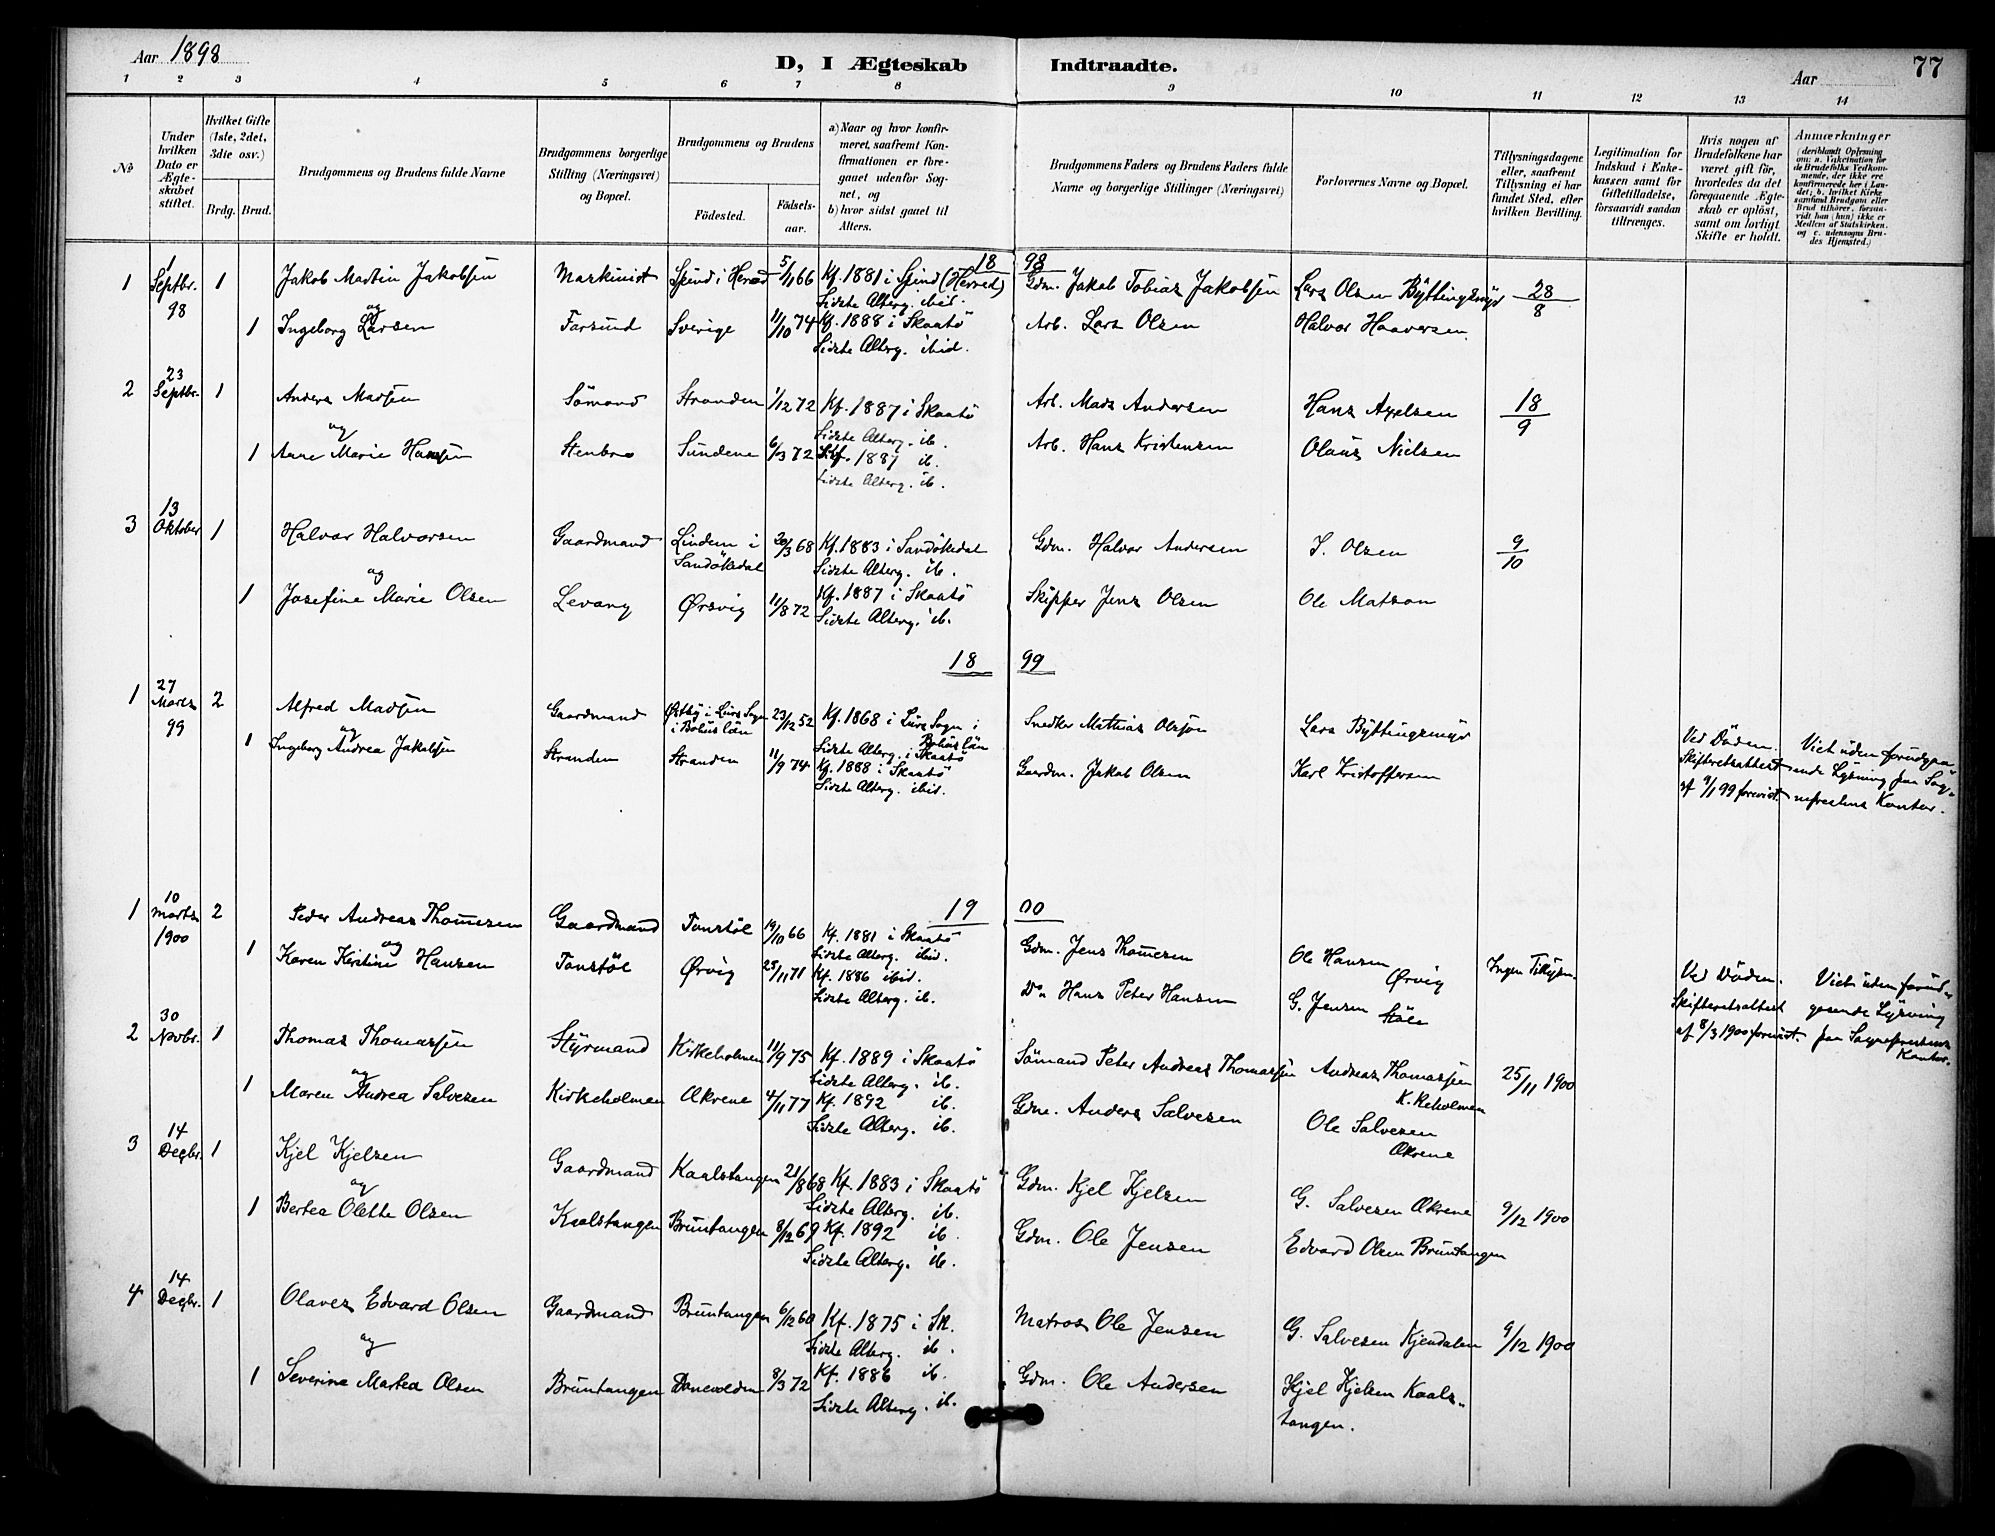 Aar 1898
D, I Ægteskab Indtraadte.
Aar
77
1 2 3 4 5 6 7 8 9 10 11 12 13 14
No
Under hvilken Dato er Ægteskabet stiftet.
Hvilket Gifte (1ste, 2det, 3die osv.)
Brdg. Brud.
Brudgommens og Brudens fulde Navne
Brudgommens borgerlige Stilling (Næringsvei) og Bopæl.
Brudgommens og Brudens
Födested.
Födselsaar.
a) Naar og hvor konfirmeret, saafremt Konfirmationen er foregaaet udenfor Sognet, og
b) hvor sidst gaaet til Alters.
Brudgommens Faders og Brudens Faders fulde Navne og borgerlige Stillinger (Næringsvei)
Forlovernes Navne og Bopæl.
Tillysningsdagene eller, saafremt Tillysning ei har fundet Sted, efter hvilken Bevilling.
Legitimation for Indskud i Enkekassen samt for Giftetilladelse, forsaavidt saadan tiltrænges.
Hvis nogen af Brudefolkene har været gift för, hvorledes da det foregaaende Ægteskab er oplöst, samt om lovligt Skifte er holdt.
Anmærkninger (deriblandt Oplysning om: a. Vakcination for de Brudefolks Vedkommende, der ikke ere konfirmerede her i Landet; b. hvilket Kirkesamfund Brudgom eller Brud tilhörer, forsaavidt han (hun) ikke er Medlem af Statskirken, og c. udensogns Brudes Hjemsted.)
18 98
1 1 Septbr. 98 1 Jakob Martin Jakobsen Maskinist Spind i Herred 5/11 66 Kf. 1881 i Spind (Herred) Gdm. Jakob Tobias Jakobsen Lars Olsen Byttingsmyr 28/8
og Sidste Alterg. ibid.
1 Ingeborg Larsen Farsund Sverige 11/10 74 Kf. 1888 i Skaatö Arb. Lars Olsen Halvor Haaversen
Sidste Alterg. ibid.
2 23 Septbr. 1 Anders Madsen Sömand Stranden 1/12 72 Kf. 1887 i Skaatö Arb. Mads Andersen Hans Axelsen 18/9
og Sidste Alterg. ib.
1 Anne Marie Hansen Stenbro Sundene 6/3 72 Kf. 1887 ib. Arb. Hans Kristensen Olaus Nielsen
Sidste Alterg. ib.
3 13 Oktober 1 Halvor Halvorsen Gaardmand Lindem i Sandökedal 20/3 68 Kf. 1883 i Sandökedal Gdm. Halvor Andersen J. Olsen 9/10
og Sidste Alterg. ib.
1 Josefine Marie Olsen Levang Ørsvig 11/8 72 Kf. 1887 i Skaatö Skipper Jens Olsen Ole Matson
Sidste Alterg. ib.
18 99
1 27 Marts 99 2 Alfred Madsen Gaardmand Østby i Lurs Sogn i Bohus län 23/12 52 Kf. 1868 i Lurs Sogn i Bohus län Snedker Mathias Olsson Lars Byttingsmyr
og Sidste Alterg. i Skaatö
1 Ingeborg Andrea Jakobsen Stranden Stranden 11/9 74 Kf. 1888 i Skaatö Gaardm. Jakob Olsen Karl Kristoffersen
Sidste Alterg. ibid.
Ved Döden. Skifteretsattest af 9/1 99 forevist.
Viet uden forudgaaende Lysning paa Sognefrestens Kontor.
19 00
1 10 Marts 1900 2 Peder Andreas Thomesen Gaardmand Tonstöl 19/10 66 Kf. 1881 i Skaatö Gdm. Jens Thomesen Ole Hansen Ørvig Ingen Tillysn.
og Sidste Alterg. ibid.
1 Karen Kirstine Hansen Tonstöl Ørvig 25/11 71 Kf. 1886 ibid. Do. Hans Peter Hansen G. Jensen Stöle
Sidste Alterg. ib.
Ved Döden. Skifteretsattest af 8/3 1900 forevist.
Viet uden forudgaaende Lysning paa Sognepresten Kontor.
2 30 Novbr. 1 Thomas Thomassen Styrmand Kirkeholmen 11/9 75 Kf. 1889 i Skaatö Sömand Peter Andreas Thomassen Andreas Thomassen Kirkeholmen 25/11 1900
og Sidste Alterg. ib.
1 Maren Andrea Salvesen Kirkeholmen Økrene 4/11 77 Kf. 1892 ib. Gdm. Anders Salvesen Ole Salvesen Økrene
Sidste Alterg. ib.
3 14 Decbr. 1 Kjel Kjelsen Gaardmand Kaalstangen 21/8 68 Kf. 1883 i Skaatö Gdm. Kjel Kjelsen G. Salvesen Økrene 9/12 1900
og Sidste Alterg. ib.
1 Bertea Olette Olsen Kaalstangen Bruntangen 8/12 69 Kf. 1892 ib. Gdm. Ole Jensen Edvard Olsen Bruntangen
Sidste Alterg. ib.
4 14 Decbr. 1 Olaves Edvard Olsen Gaardmand Bruntangen 6/12 60 Kf. 1875 i Sk. Matros Ole Jensen G. Salvesen Kjendalen 9/12 1900
og Sidste Alterg. ib.
1 Severine Martea Olsen Bruntangen 8/3 72 Kf. 1886 ib. Gdm. Ole Andersen Kjel Kjelsen Kaalstangen.
Sidste Alterg. ib.